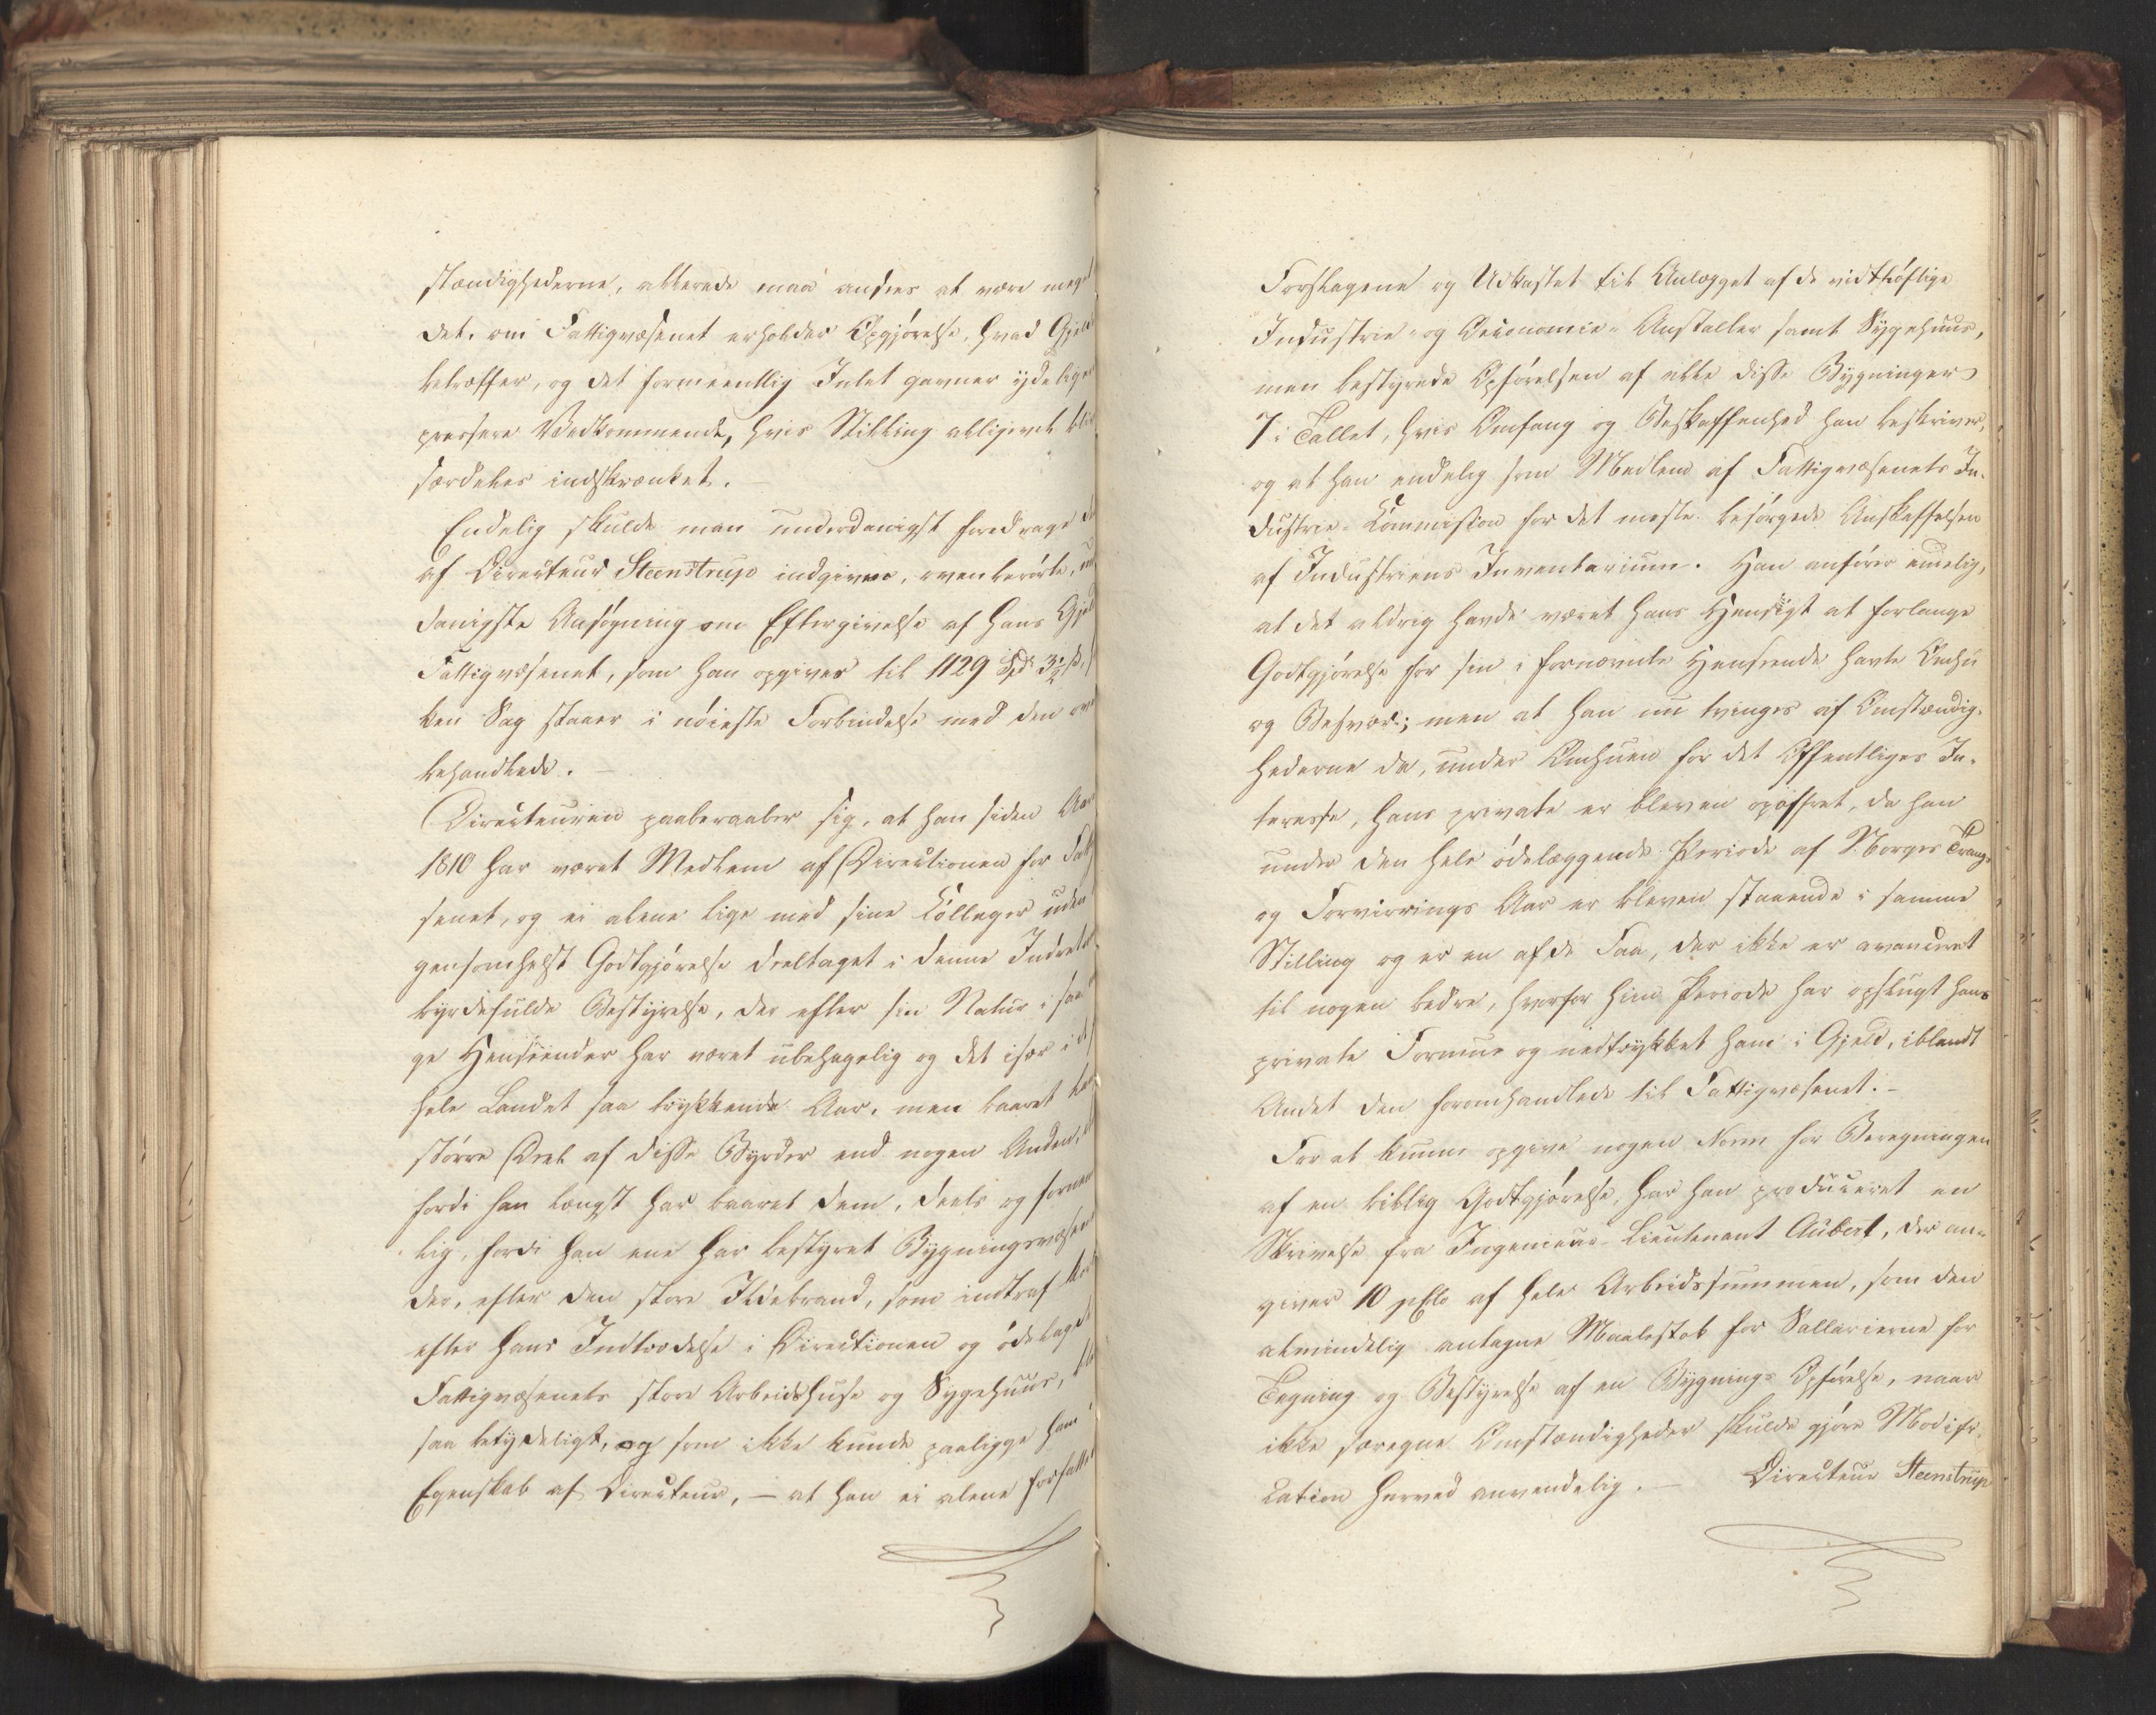 stændighederne, allerede maa ansees at være meget
det, om Fattigvæsenet erholder Opgjørelse, hvad Gjeld
betræffer, og det formeentlig Intet gavner ydeligere
pressere Vedkommende, hvis Stilling alligevel bli
særdeles indskrænket. —
Endelig skulde man underdanigst foredrage d
af Directeur Steenstrup indgivne, ovenberørte, un
danigste Ansøgning om Eftergivelse af hans Gjeld
Fattigvæsenet, som han opgiver til 1129 Spd 3½ s,
ken Sag staaer i nøieste Forbindelse med den ov
behandlede. —
Directeuren paaberaaber sig, at han siden Aar
1810 har været Medlem af Directionen for Fatt
senet, og ei alene lige med sine Colleger uden
gensomhelst Godtgjørelse deeltaget i denne Indret
byrdefulde Bestyrelse, der efter sin Natur i saa
ge Henseender har været ubehagelig og det især i d
hele Landet saa trykkende Aar, men baaret
større Deel af disse Byrder end nogen Anden,
fordi han længst har baaret dem, deels og fornem
lig, fordi han ene har bestyret Bygningsvæsen
der, efter den store Ildebrand, som indtraf kort
efter hans Indtrædelse i Directionen og ødelagde
Fattigvæsenets store Arbeidshuse og Sygehuus,
saa betydeligt, og som ikke kunde paaligge ham i
Egenskab af Directeur, — at han ei alene forfatte
Forslagene og Udkastet til Anlægget af de vidtløftige
Industrie- og Oeconomie-Anstalter samt Sygehuus,
men bestyrede Opførelsen af alle disse Bygninger
7 i Tallet, hvis Omfang og Beskaffenhed han beskriver,
og at han endelig som Medlem af Fattigvæsenets In-
dustrie-Commission for det meste besørgede Anskaffelsen
af Industriens Inventarium. Han anfører endelig,
at det aldrig havde været hans Hensigt at forlange
Godtgjørelse for sin i fornævnte Henseende havte Omhu
og Besvær; men at han nu tvinges af Omstændig-
hederne da, under Omhuen for det Offentliges In-
teresse, hans private er bleven opoffret, da han
under den hele ødelæggende Periode af Norges Trang-
og Forvirrings Aar er bleven staaende i samme
Stilling og er en af de Faa, der ikke er avanceret
til nogen bedre, hvorfor hiin Periode har opslugt hans
private Formue og nedtrykket ham i Gjeld, iblandt
Andet den foromhandlede til Fattigvæsenet. —
For at kunne opgive nogen Norm for Beregningen
af en billig Godtgjørelse, har han produceret en
Skrivelse fra Ingenieur-Lieutenant Aubert, der an-
giver 10 pCto af hele Arbeidssummen, som den
almindelig antagne Maalestok for Sallarierne for
Tegning og Bestyrelse af en Bygnings Opførelse, naar
ikke særegne Omstændigheder skulde gjøre Modifi-
cation herved anvendelig. — Directeur Steenstrup